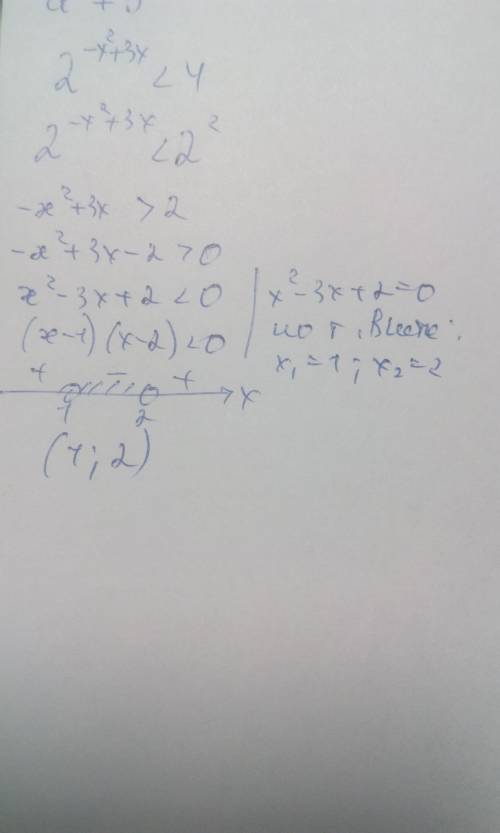 2^{-x²+3x} < 4
2^{-x²+3x} < 2²
-x²+3x > 2
-x²+3x-2 > 0
x²-3x+2 < 0
(x-1)(x-2) < 0
+ - + x
1 2
(1; 2)
x²-3x+2=0
по т. Виета:
x₁=1; x₂=2